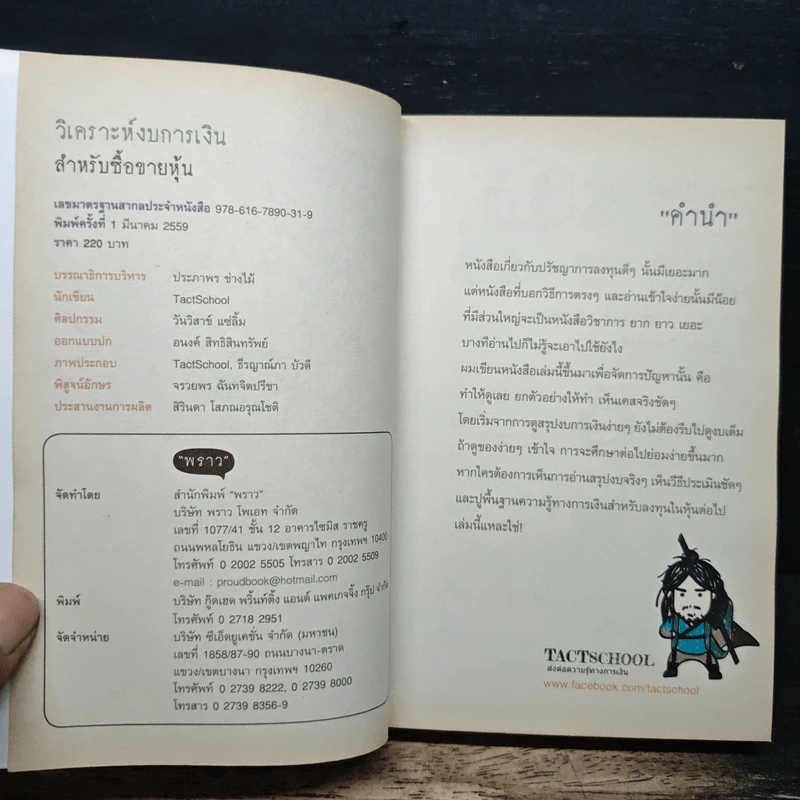 วิเคราะห์งบการเงิน
สำหรับซื้อขายหุ้น
เลขมาตรฐานสากลประจำหนังสือ 978-616-7890-31-9
พิมพ์ครั้งที่ 1 มีนาคม 2559
ราคา 220 บาท
บรรณาธิการบริหาร ประภาพร ช่างไม้
นักเขียน TactSchool
ศิลปกรรม วันวิสาข์ แซ่ลิ้ม
ออกแบบปก อนงค์ สิทธิสินทรัพย์
ภาพประกอบ TactSchool, ธีรญาณ์ภา บัวดี
พิสูจน์อักษร จรวยพร ฉันทจิตปรีชา
ประสานงานการผลิต สิรินดา โสภณอรุณโชติ
"พราว"
จัดทำโดย สำนักพิมพ์ "พราว"
บริษัท พราว โพเอท จำกัด
เลขที่ 1077/41 ชั้น 12 อาคารไซมิส ราชครู
ถนนพหลโยธิน แขวง/เขตพญาไท กรุงเทพฯ 10400
โทรศัพท์ 0 2002 5505 โทรสาร 0 2002 5509
e-mail : proudbook@hotmail.com
พิมพ์ บริษัท กู๊ดเฮด พริ้นท์ติ้ง แอนด์ แพคเกจจิ้ง กรุ๊ป จำกัด
โทรศัพท์ 0 2718 2951
จัดจำหน่าย บริษัท ซีเอ็ดยูเคชั่น จำกัด (มหาชน)
เลขที่ 1858/87-90 ถนนบางนา-ตราด
แขวง/เขตบางนา กรุงเทพฯ 10260
โทรศัพท์ 0 2739 8222, 0 2739 8000
โทรสาร 0 2739 8356-9
"คำนำ"
หนังสือเกี่ยวกับปรัชญาการลงทุนดีๆ นั้นมีเยอะมาก
แต่หนังสือที่บอกวิธีการตรงๆ และอ่านเข้าใจง่ายนั้นมีน้อย
ที่มีส่วนใหญ่จะเป็นหนังสือวิชาการ ยาก ยาว เยอะ
บางทีอ่านไปก็ไม่รู้จะเอาไปใช้ยังไง
ผมเขียนหนังสือเล่มนี้ขึ้นมาเพื่อจัดการปัญหานั้น คือ
ทำให้ดูเลย ยกตัวอย่างให้ทำ เห็นเคสจริงชัดๆ
โดยเริ่มจากการดูสรุปงบการเงินง่ายๆ ยังไม่ต้องรีบไปดูงบเต็ม
ถ้าดูของง่ายๆ เข้าใจ การจะศึกษาต่อไปย่อมง่ายขึ้นมาก
หากใครต้องการเห็นการอ่านสรุปงบจริงๆ เห็นวิธีประเมินชัดๆ
และปูพื้นฐานความรู้ทางการเงินสำหรับลงทุนในหุ้นต่อไป
เล่มนี้แหละใช่!
TACTSCHOOL
ส่งต่อความรู้ทางการเงิน
www.facebook.com/tactschool